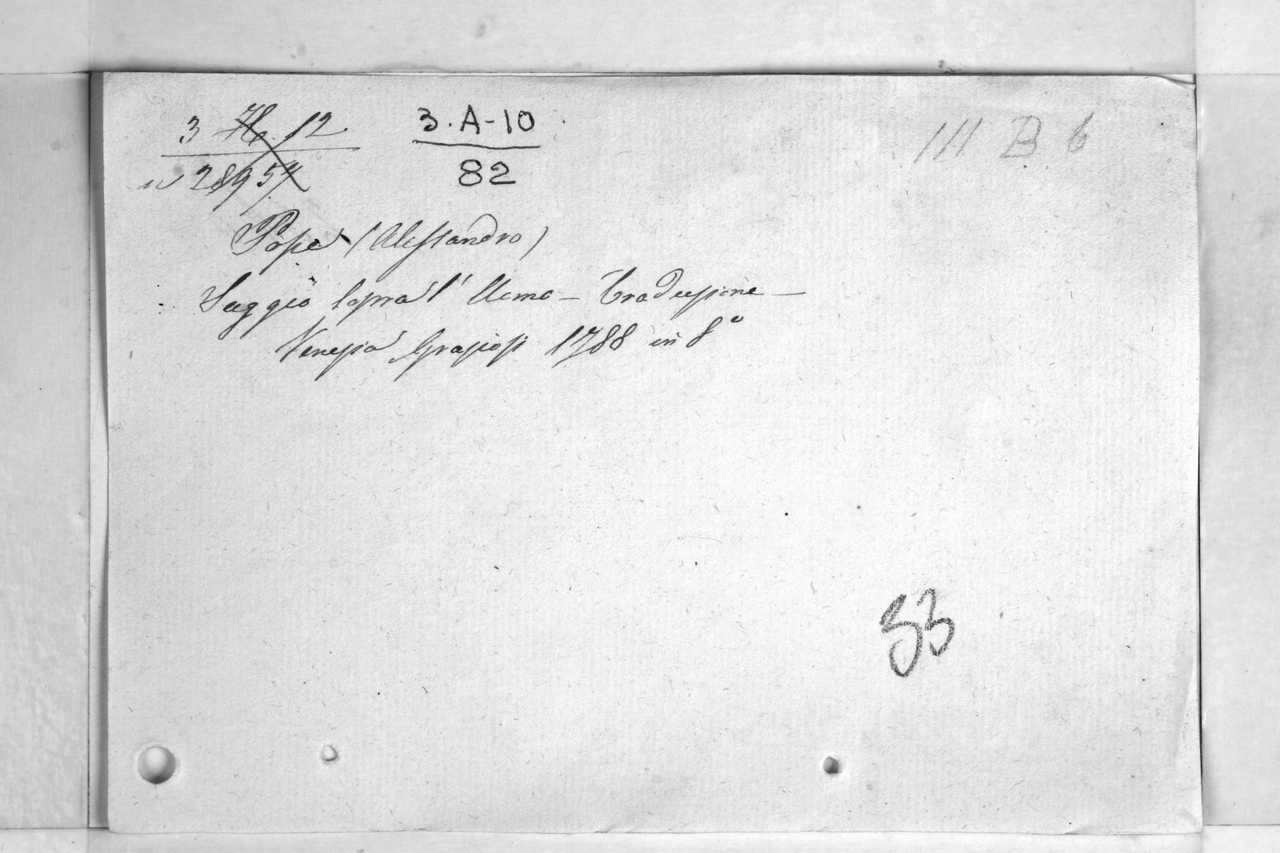 3 12 3.A-10 III B 6
82
Pope (Alessandro)
Saggio sopra l'Uomo - Traduzione -
Venezia Graziosi 1788 in 8º
33